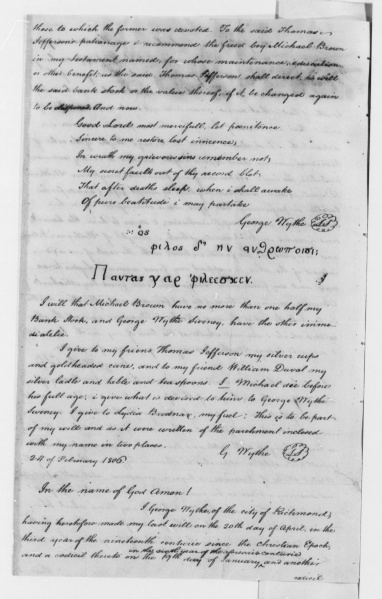 those to which the former was devoted. To the said Thomas
Jefferson's patronage i recommend the freed boy Michael Brown
in my testament named, for whose maintenance, education
or other benefit, as the said Thomas Jefferson shall direct, i will
the said bank stock or the value thereof, if it be changed again
to be disposed. And now
Good Lord most mercifull, let penitence
Sincere to me restore lost innocence;
In wrath my grievous sins remember not;
My secret faults out of thy record blot;
That after deaths sleep, when i shall awake
Of pure beatitude i may partake
George Wythe LS
ὁς
φιλος δ' ην ανθρωποισι;
Παντας γαρ φιλεεσκεν.
I will that Michael Brown have no more than one half my
Bank Stock, and George Wythe Sweney, have the other imme-
diatelie.
I give to my friend Thomas Jefferson my silver cups
and goldheaded cane, and to my friend William Duval my
silver ladle and table and tea spoons. If Michael die before
his full age, i give what is devised to him to George Wythe
Sweney. I give to Lydia Broadnax, my fuel: This is to be part
of my will and as if it were written of the parchment inclosed
with my name in two places.
G Wythe LS
24 of February 1806
In the name of God Amen!
I George Wythe, of the city of Richmond,
having heretofore made my last will on the 20th day of April, in the
third year of the nineteenth centurie since the Christian Epoch,
in the sixth year of the foresaid centurie
and a codicil thereto on the 19th day of January, and another
codicil